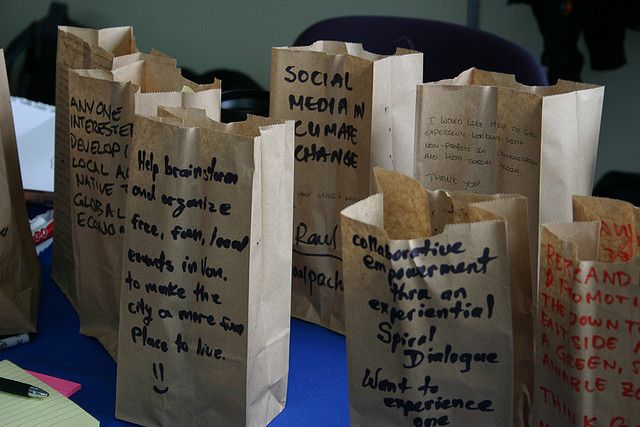 ANYONE
INTERESTED
DEVELOP
LOCAL
NATIVE
GLOBAL
Help brainstorm
and organize
free, fun, local
events in Van.
to make the
city a more fun
place to live.
!!
SOCIAL
MEDIA IN
CLIMATE
CHANGE
Raul
I WOULD LIKE HELP TO GET
EXPERIENCE WORKING WITH
NON-PROFITS IN COMMUNICATION
AND WITH SOCIAL MEDIA.
THANK YOU
collaborative
empowerment
thru an
experiential
Spiral
Dialogue
Want to
experience
one
REBRAND
& PROMOT
THE DOWNT
EAST SIDE A
A GREEN, S
AINABLE ZO
THINK